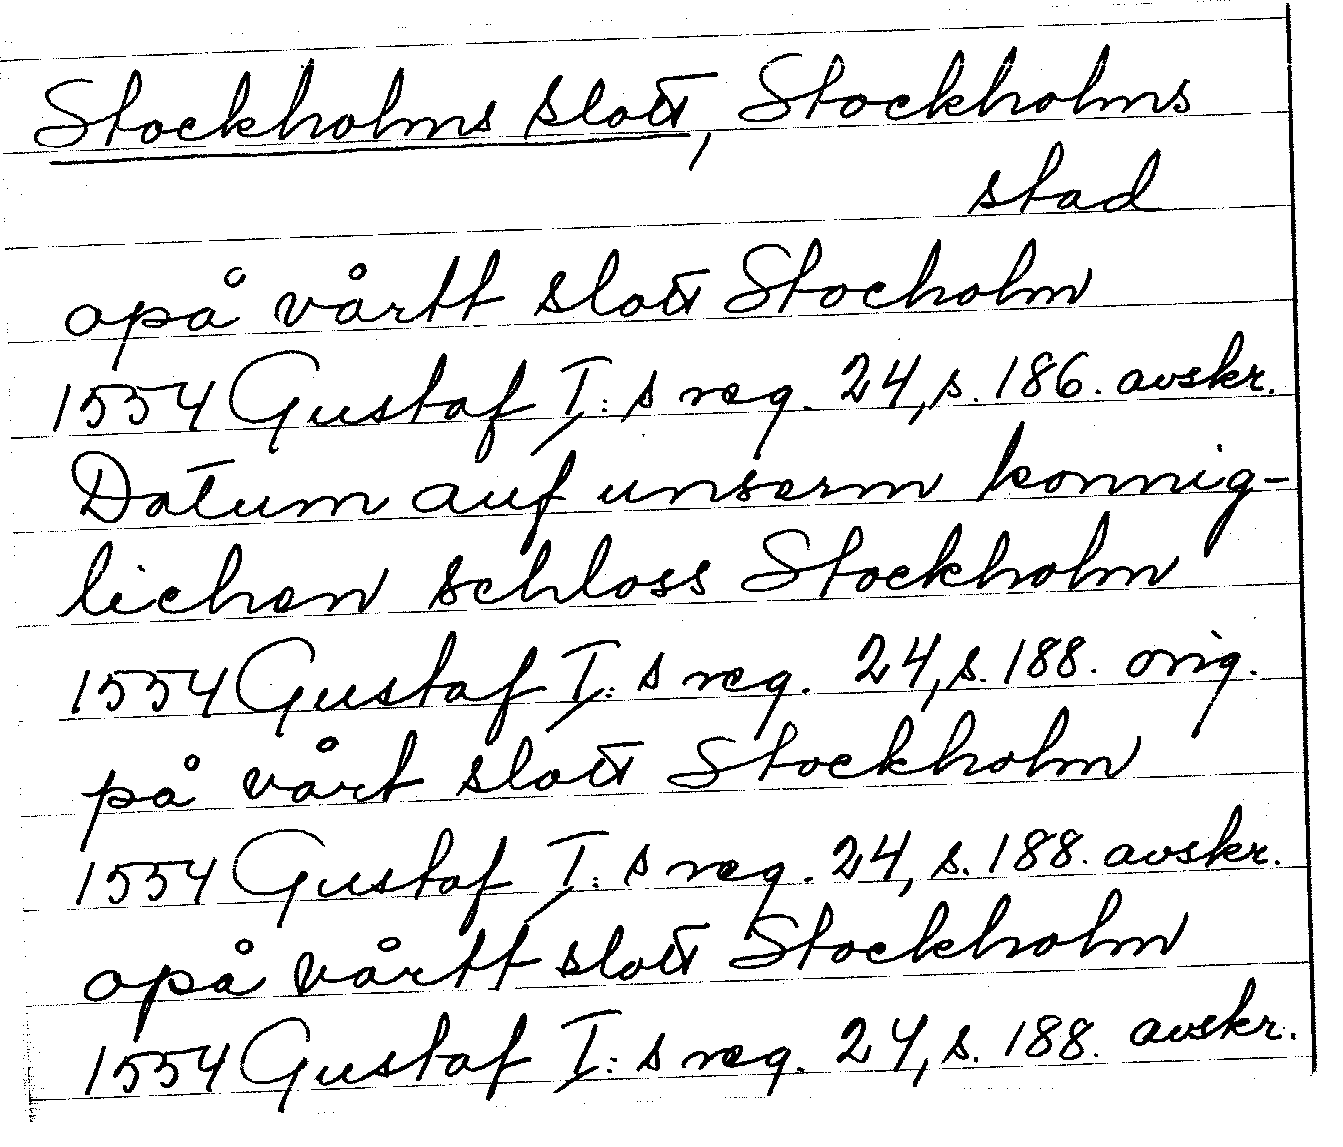 Stockholms slott, Stockholms
stad
opå vårtt slott Stocholm
1554 Gustaf I:s reg. 24, s. 186. avskr.
Datum auf unserm konnig-
lichen schloss Stockholm
1554 Gustaf I:s reg. 24, s. 188. orig.
på vårt slott Stockholm
1554 Gustaf I:s reg. 24, s. 188. avskr.
opå vårtt slott Stockholm
1554 Gustaf I:s reg. 24, s. 188. avskr.